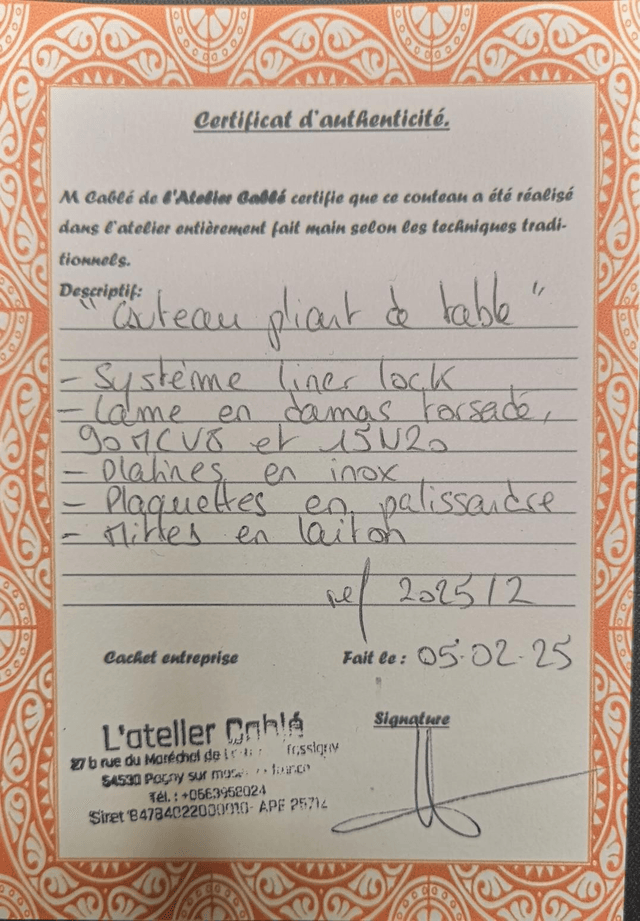 Certificat d'authenticité.
M Cablé de l'Atelier Cablé certifie que ce couteau a été réalisé
dans l'atelier entièrement fait main selon les techniques tradi-
tionnels.
Descriptif:
"Couteau pliant de table"
- Système liner lock
- Lame en damas torsadé,
90MCV8 et 15N20
- Platines en inox
- Plaquettes en palissandre
- Mitres en laiton
ref 2025/2
Cachet entreprise
Fait le : 05-02-25
L'atelier Cablé
Signature
27 b rue du Maréchal de Tassigny
54530 Pagny sur France
Tél. : +0663968024
Siret 84784022000010- APE 2571Z